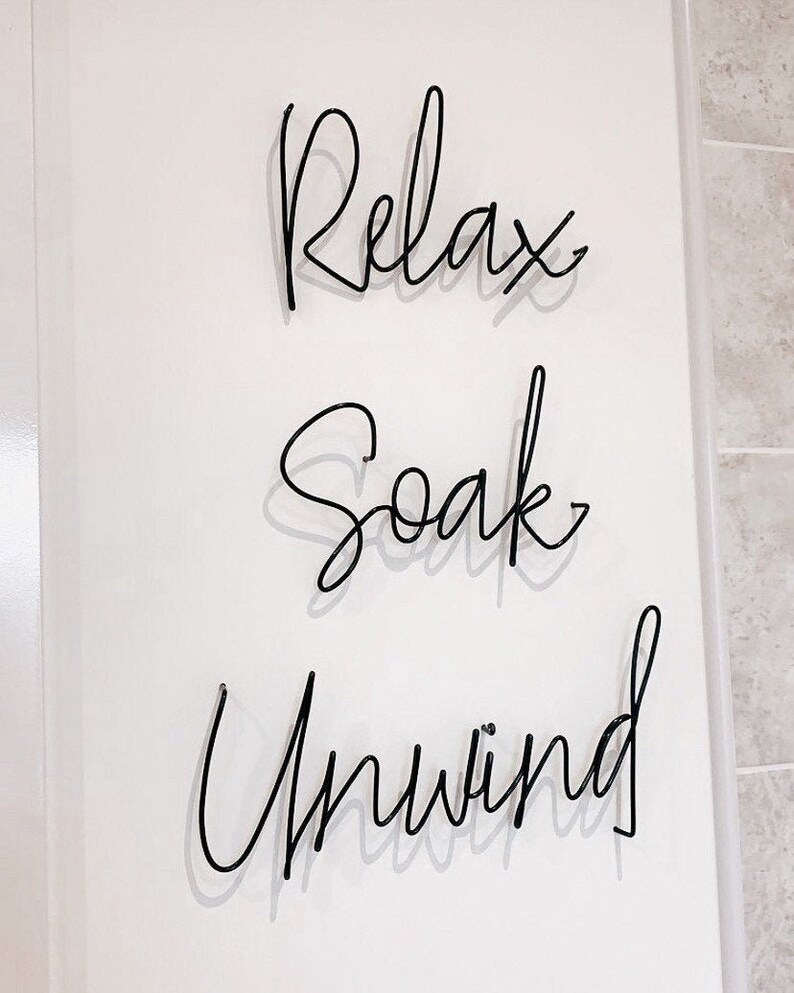 Relax
Soak
Unwind